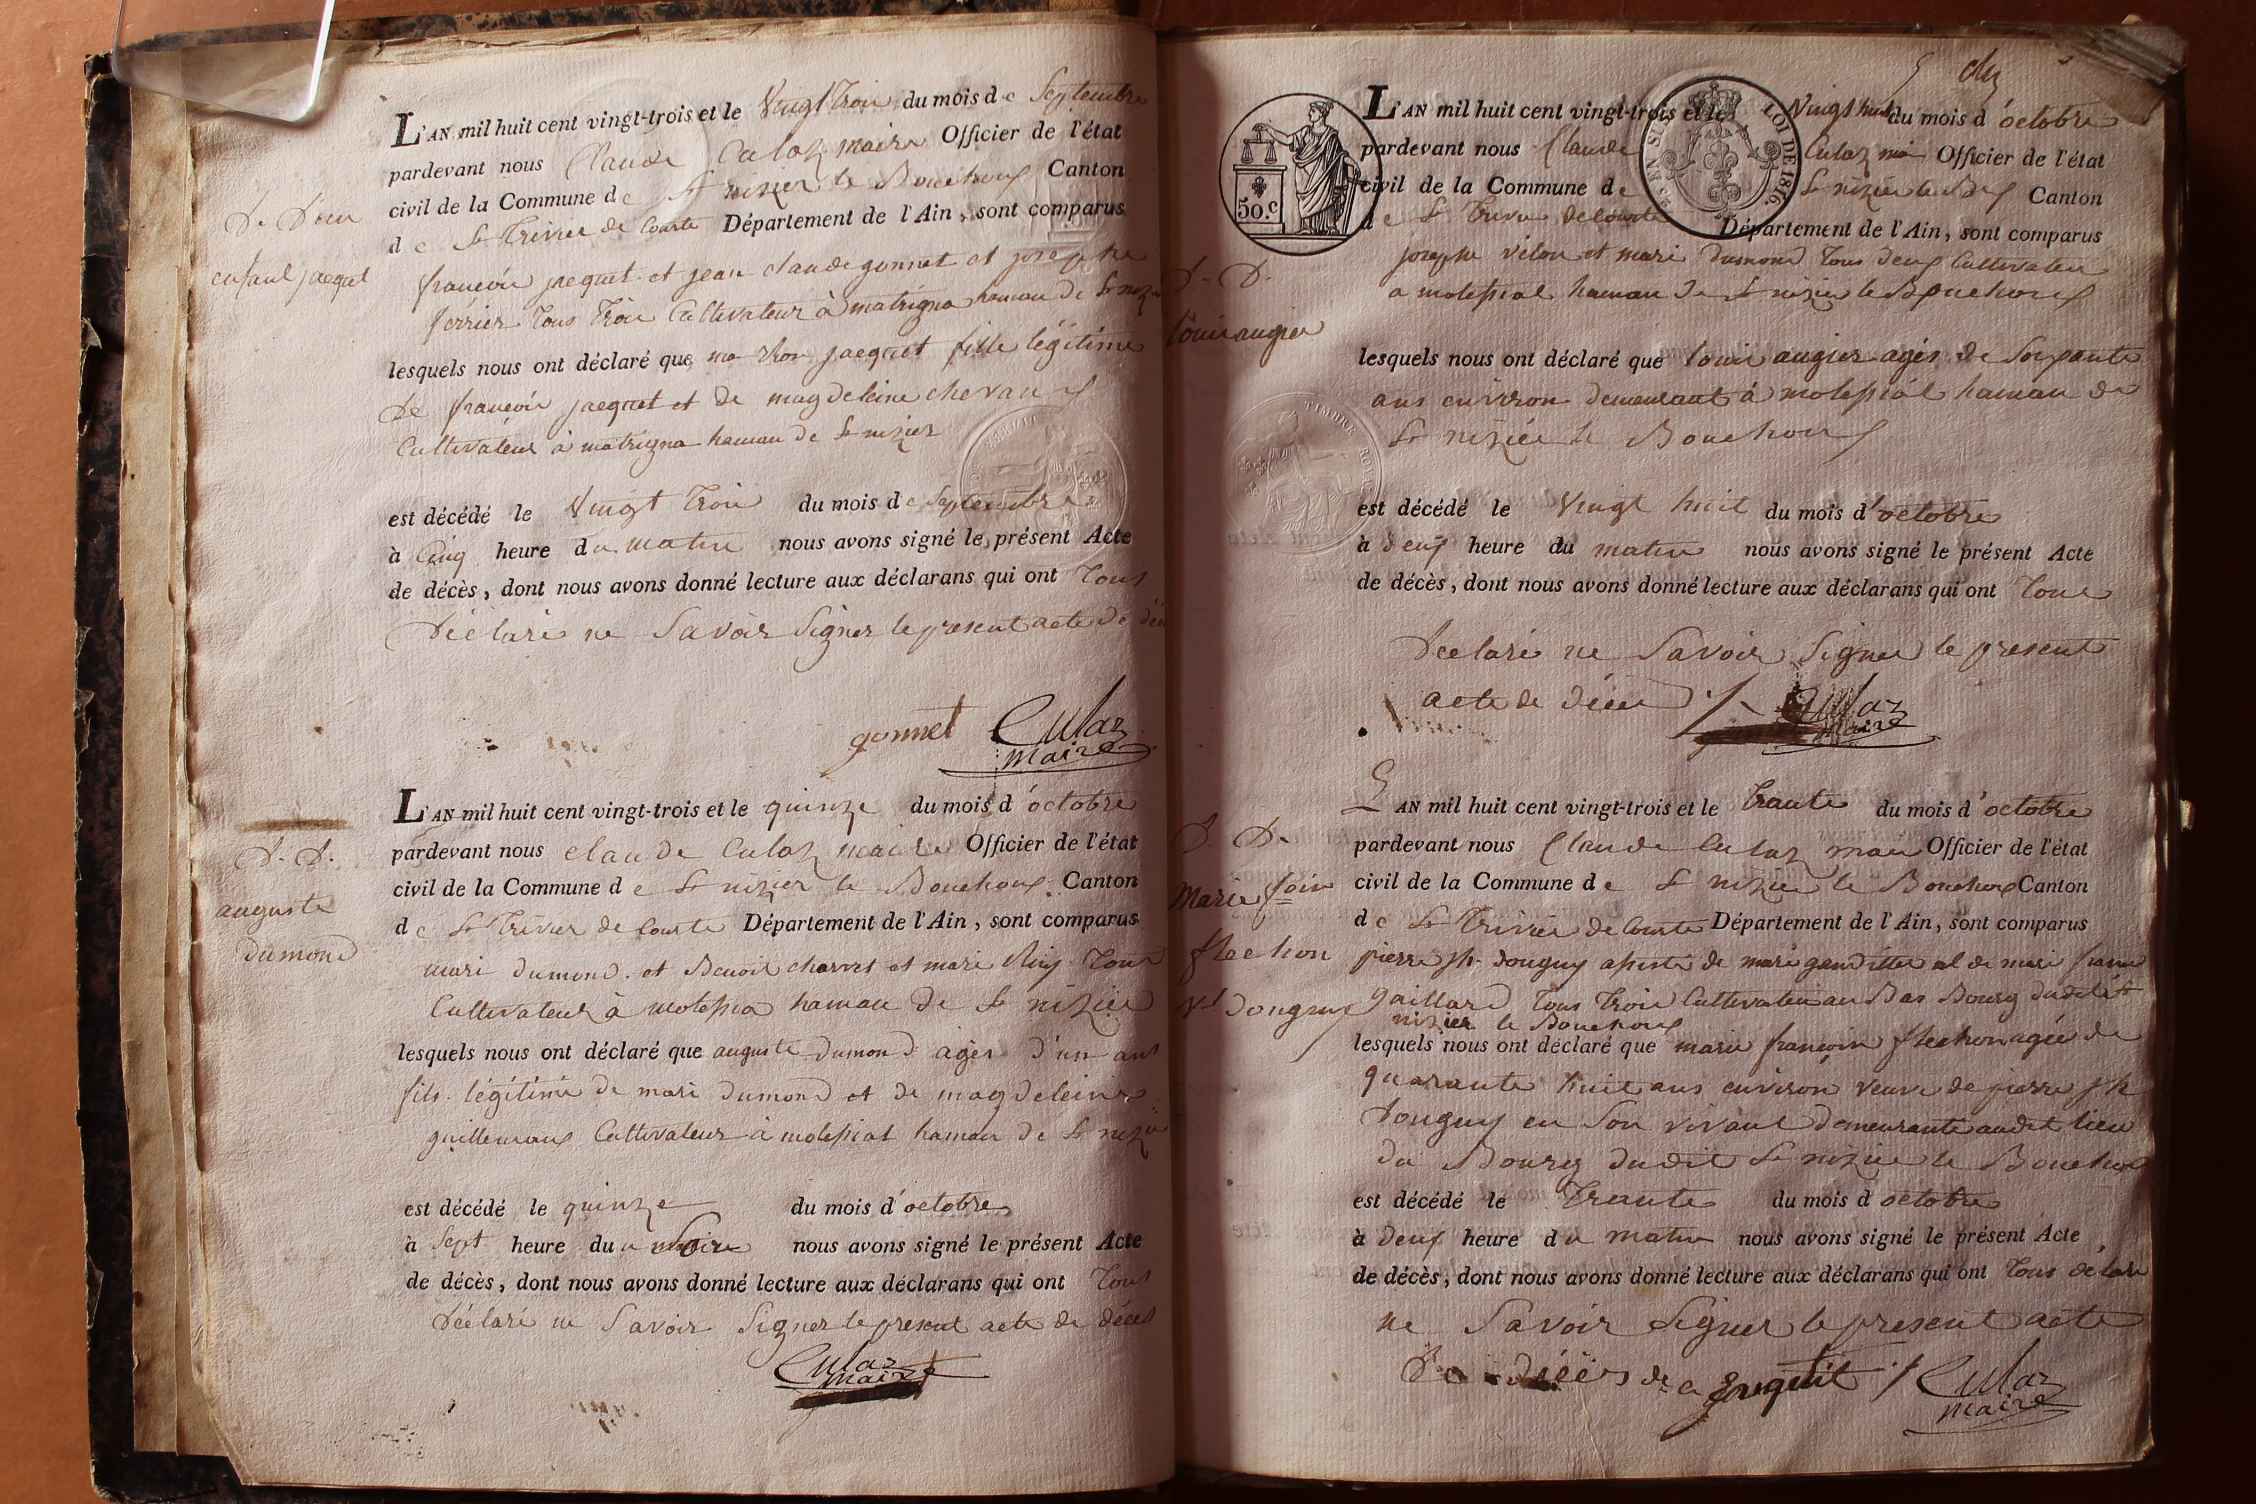 L'AN mil huit cent vingt-trois et le Vingt troi du mois de Septembre
pardevant nous Claude Culaz maire Officier de l'état
civil de la Commune de St nizier le Bouchoux Canton
de St Trivier de Courte Département de l'Ain, sont comparus
françoi jacquet et jean claude gonnet et josephe
ferrier tous troi Cultivateur à matrigna hamau de St nizi
lesquels nous ont déclaré que jacquet fille légitime
De françoi jacquet et de magdeleine chevaux
Cultivateur à matrigna hamau de St nizier
est décédé le Vingt troi du mois de Septembre
à Cinq heure du matin nous avons signé le présent Acte
de décès, dont nous avons donné lecture aux déclarans qui ont tous
Déclaré ne Savoir Signer le present acte de
gonnet Culaz
maire
enfant jacquet
L'AN mil huit cent vingt-trois et le quinze du mois d'octobre
pardevant nous claude Culaz maire Officier de l'état
civil de la Commune de St nizier le Bouchoux Canton
de St Trivier de Courte Département de l'Ain, sont comparus
mari dumond et Benoit charvet et mari tous
Cultivateur à molepia hamau de St nizier
lesquels nous ont déclaré que auguste dumond agés d'un ans
fils légitime de mari dumond et de magdeleine
guillemaux Cultivateur à molepial hamau de St nizie
est décédé le quinze du mois d'octobre
à Sept heure du Soire nous avons signé le présent Acte
de décès, dont nous avons donné lecture aux déclarans qui ont tous
Déclaré ne Savoir Signer le present acte de décès
Culaz
maire
D. D.
auguste
dumond
50.c
LOI DE 1816.
L'AN mil huit cent vingt-trois et le Vingt huit du mois d'octobre
pardevant nous Claude Culaz Officier de l'état
civil de la Commune de St nizier le Canton
de St Trivier de Courte Département de l'Ain, sont comparus
josephe vélon et mari dumond tous deux Cultivateur
a molepial hamau de St nizier le Bouchoux
lesquels nous ont déclaré que loui augier agés de Soixante
ans environ demeurant à molepial hamau de
St nizier le Bouchoux
est décédé le Vingt huit du mois d'octobre
à deux heure du matin nous avons signé le présent Acte
de décès, dont nous avons donné lecture aux déclarans qui ont tous
Déclaré ne Savoir Signer le present
acte de décès
Culaz
maire
D. D.
loui augier
L'AN mil huit cent vingt-trois et le trante du mois d'octobre
pardevant nous Claude Culaz Officier de l'état
civil de la Commune de St nizier le Bouchoux Canton
de St Trivier de Courte Département de l'Ain, sont comparus
pierre jh douguy de mari et de mari
gaillard tous troi Cultivateur au Bas Bourg dudit St
nizier le Bouchoux
lesquels nous ont déclaré que marie françoise flechon agée de
quarante huit ans environ veuve de pierre jh
Douguy en Son vivant demeurante audit lieu
du Bourg dudit St nizier le Bouchoux
est décédé le trante du mois d'octobre
à deux heure du matin nous avons signé le présent Acte
de décès, dont nous avons donné lecture aux déclarans qui ont tous
ne Savoir Signer le present acte
De décès
Culaz
maire
D. D.
Marie
flechon
Ve Douguy